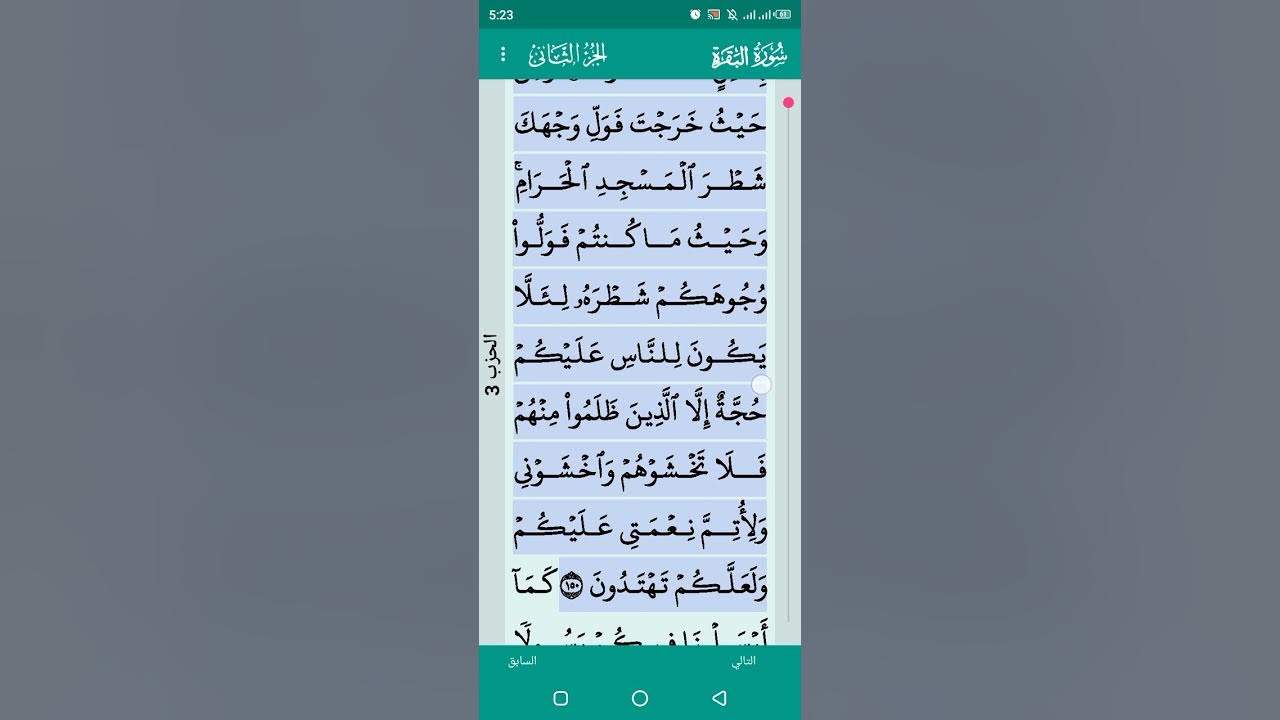 5:23
69
سُورَةُ البَقَرَةِ
الجُزْءُ الثَّانِي
حَيۡثُ خَرَجۡتَ فَوَلِّ وَجۡهَكَ
شَطۡرَ ٱلۡمَسۡجِدِ ٱلۡحَرَامِۚ
وَحَيۡثُ مَا كُنتُمۡ فَوَلُّواْ
وُجُوهَكُمۡ شَطۡرَهُۥ لِئَلَّا
يَكُونَ لِلنَّاسِ عَلَيۡكُمۡ
حُجَّةٌ إِلَّا ٱلَّذِينَ ظَلَمُواْ مِنۡهُمۡ
فَلَا تَخۡشَوۡهُمۡ وَٱخۡشَوۡنِي
وَلِأُتِمَّ نِعۡمَتِي عَلَيۡكُمۡ
وَلَعَلَّكُمۡ تَهۡتَدُونَ ١٥٠ كَمَآ
أَرۡسَلۡنَا فِيكُمۡ رَسُولٗا
الحزب 3
التالي
السابق